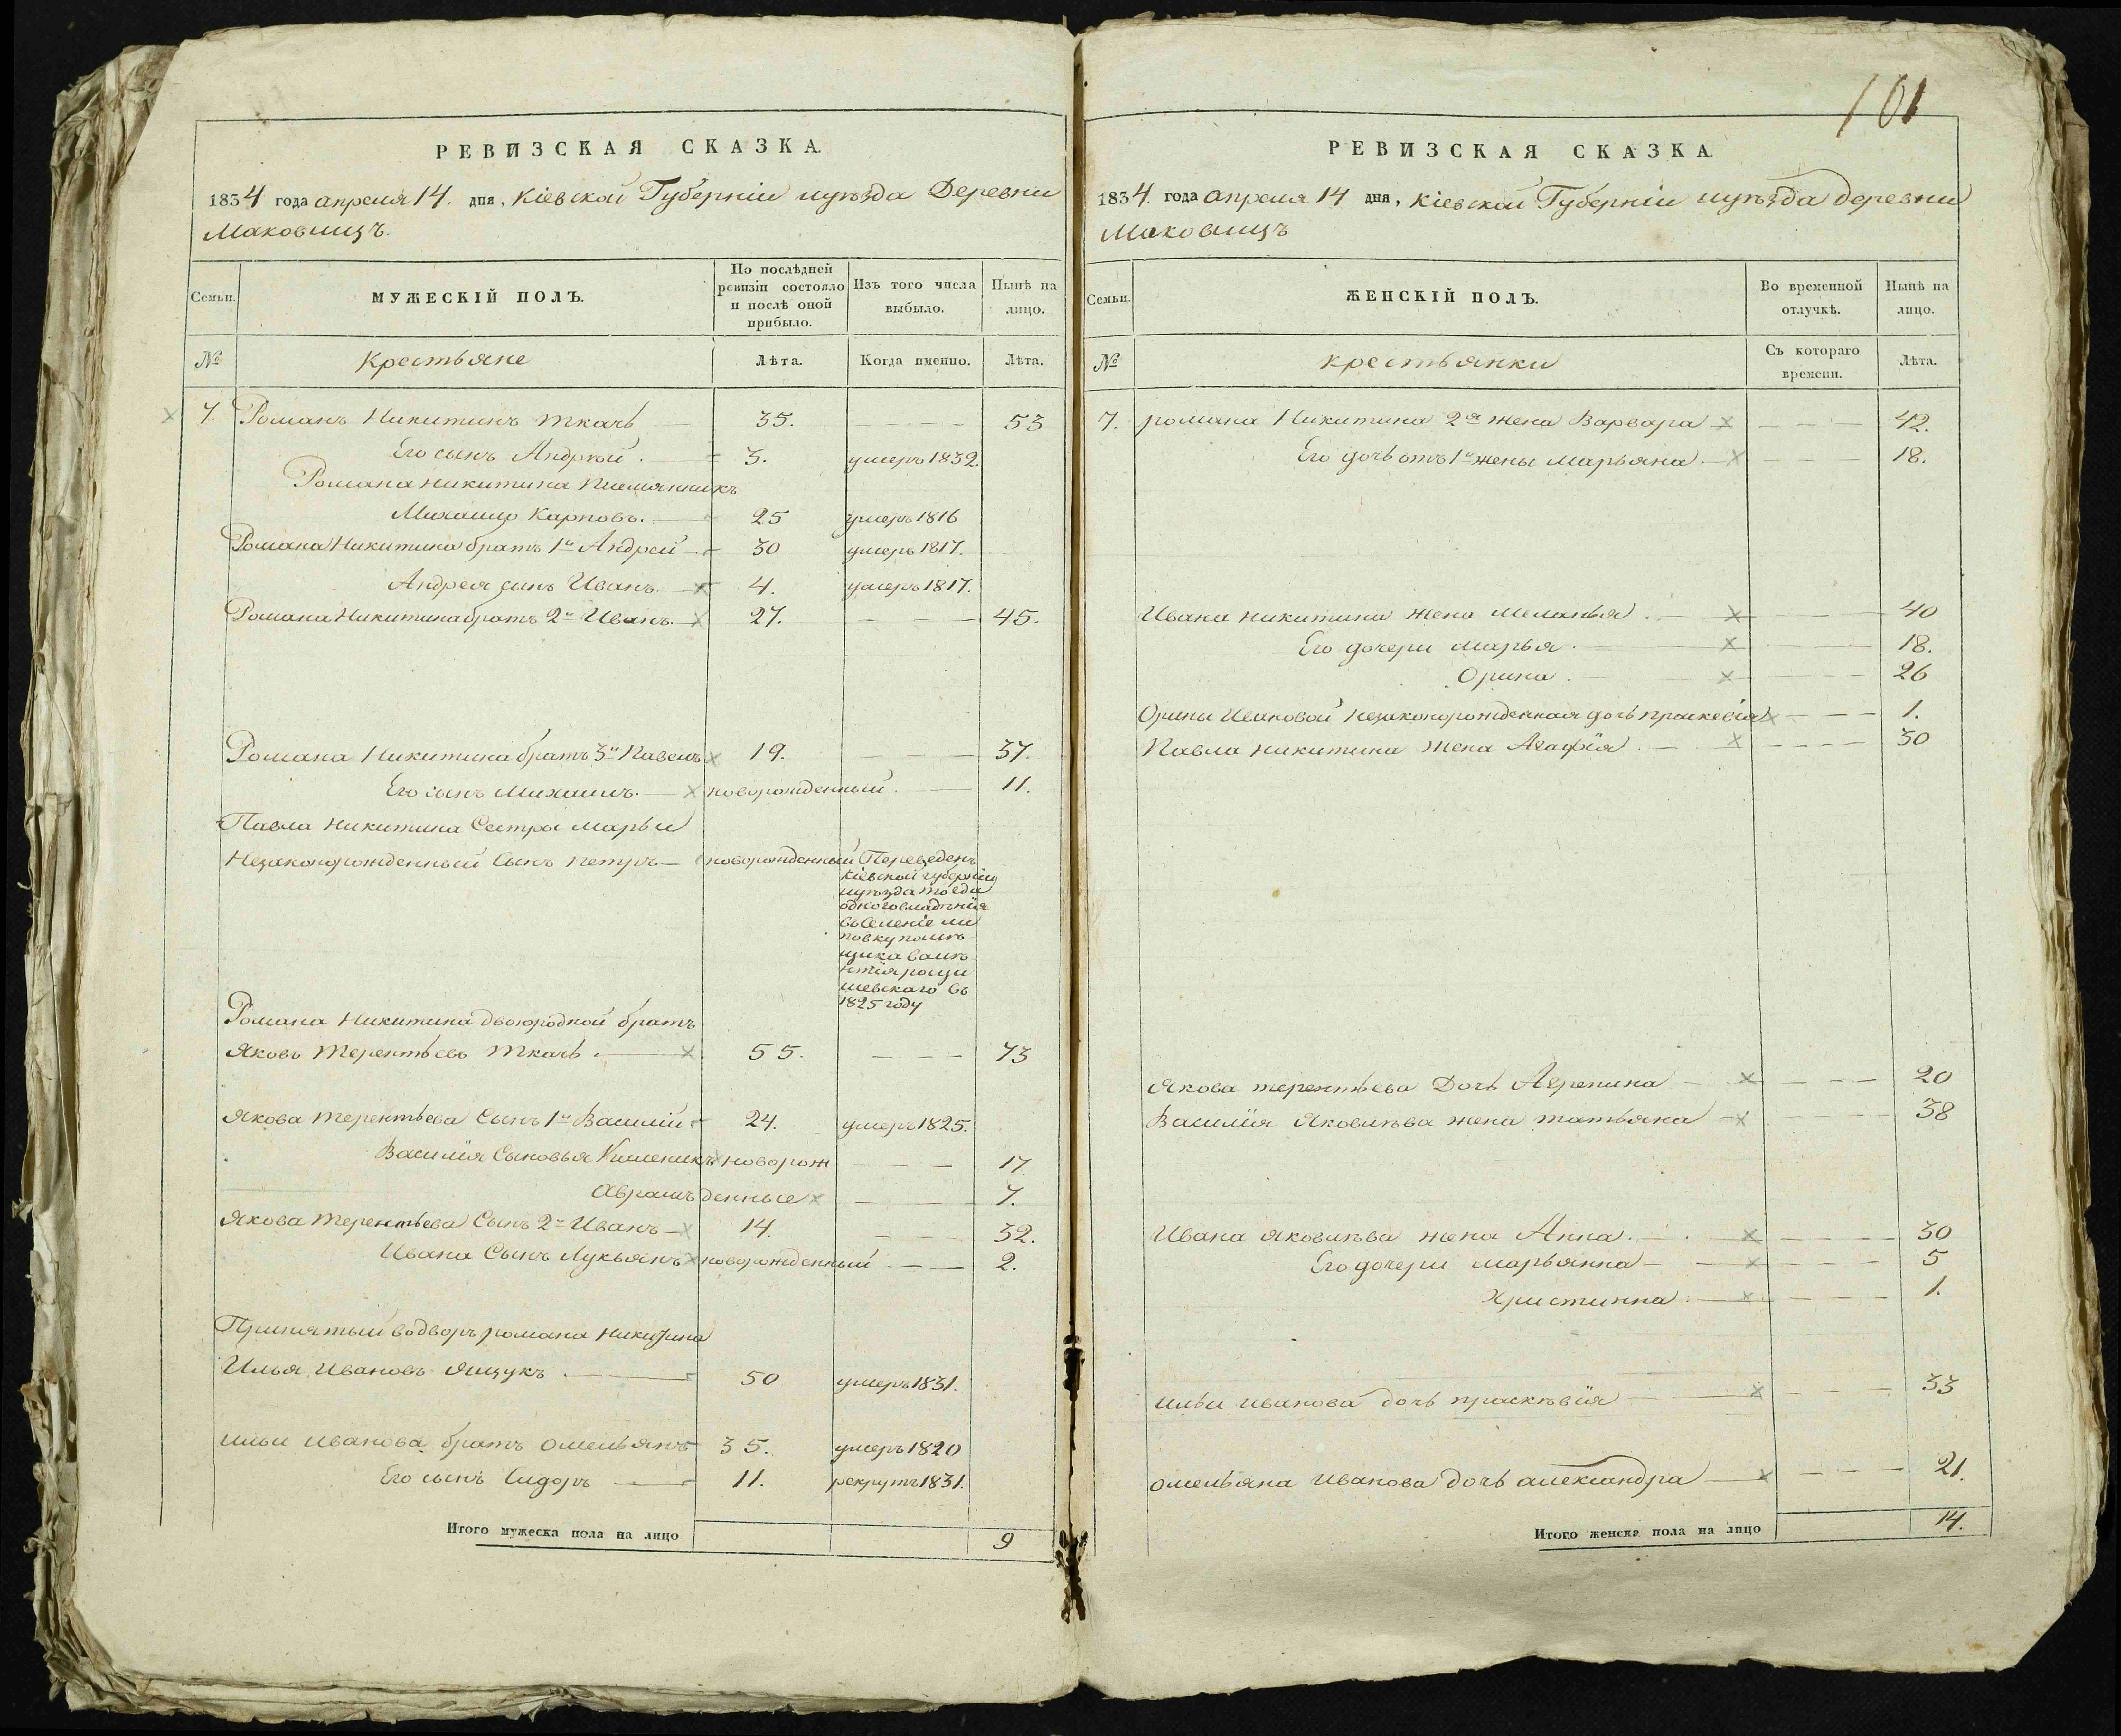 РЕВИЗСКАЯ СКАЗКА.
1834 года апреля 14. дня, Кіевской Губерніи иуѣзда Деревни
Маковищъ.
Семьи.
МУЖЕСКІЙ ПОЛЪ.
По послѣдней
ревизіи состояло
и послѣ оной
прибыло.
Изъ того числа
выбыло.
Нынѣ на
лицо.
№
Крестьяне
Лѣта.
Когда именно.
Лѣта.
7. Романъ Никитинъ ткачь 35. — — — 53
Его сынъ Андрей. 3. умеръ 1832.
Романа никитина племянникъ
Михаилъ Карповъ. 25 умеръ 1816
Романа Никитина братъ 1й Андрей 30 умеръ 1817.
Андрея сынъ Иванъ. 4. умеръ 1817.
Романа Никитина братъ 2й Иванъ. 27. — — — 45.
Романа Никитина братъ 3й Павелъ 19. — — — 37.
Его сынъ Михаилъ. новорожденный. — 11.
Павла никитина Сестры марьи
Незаконорожденный Сынъ петръ — новорожденный Переведенъ
кіевской губерніи
иуѣзда тогда
одного владѣнія
въ Селеніе ли
повку помѣ
щика
1825 году
Романа Никитина двоюродной братъ
Яковъ терентьевъ ткачь. 55. — — — 73
Якова терентьева Сынъ 1й Василій 24. умеръ 1825.
Василія Сыновья Каленикъ новорож — — — 17
Аврамъ денные — — 7.
Якова терентьева Сынъ 2й Иванъ 14. — — 32.
Ивана Сынъ Лукьянъ новорожденный. — — 2.
Принятый водворъ романа никитина
Илья Ивановъ Ящукъ. 50 умеръ 1831.
ильи иванова братъ омельянъ 35. умеръ 1820
Его сынъ Сидоръ 11. рекрутъ 1831.
Итого мужеска пола на лицо 9
101
РЕВИЗСКАЯ СКАЗКА.
1834. года апреля 14 дня, кіевской Губерніи иуѣзда деревни
Маковищъ
Семьи.
ЖЕНСКІЙ ПОЛЪ.
Во временной
отлучкѣ.
Нынѣ на
лицо.
№
крестьянки
Съ котораго
времени.
Лѣта.
7. романа Никитина 2я жена Варвара — — — 42.
Его дочь отъ 1й жены марьяна. — — 18.
Ивана никитина жена меланья. — — — 40
Его дочери марья. — — 18.
Орина. — — — 26
Орины Ивановой незаконорожденная дочь праскевія — — — 1.
Павла никитина жена Агафія. — — — — 30
Якова терентьева Дочь Агрепина — — — — 20
Василія Яковлѣва жена татьяна — — — 38
Ивана яковлѣва жена Анна. — — — 30
Его дочери марьянна — — — — 5
Христинна. — — — 1.
ильи иванова дочь праскѣвія — — — 33
омельяна иванова дочь александра — — — 21.
Итого женска пола на лицо 14.